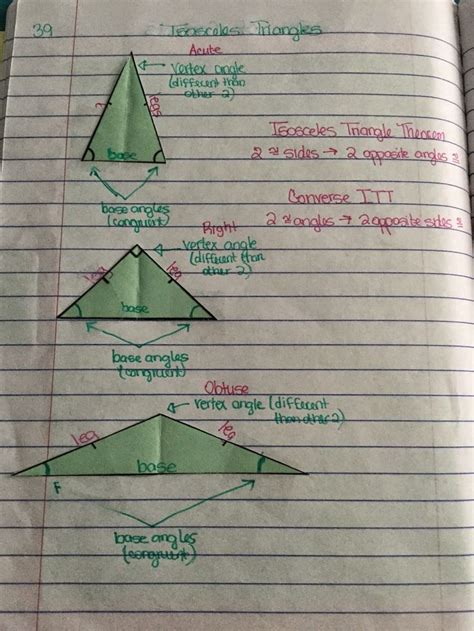 39 Isosceles Triangles
Acute
vertex angle
(different than
other 2)
legs
base
base angles
(congruent)
Isosceles Triangle Theorem
2 ≅ sides → 2 opposite angles ≅
Converse ITT
2 ≅ angles → 2 opposite sides ≅
Right
vertex angle
(different than
other 2)
leg
leg
base
base angles
(congruent)
Obtuse
vertex angle (different
than other 2)
leg
leg
base
base angles
(congruent)